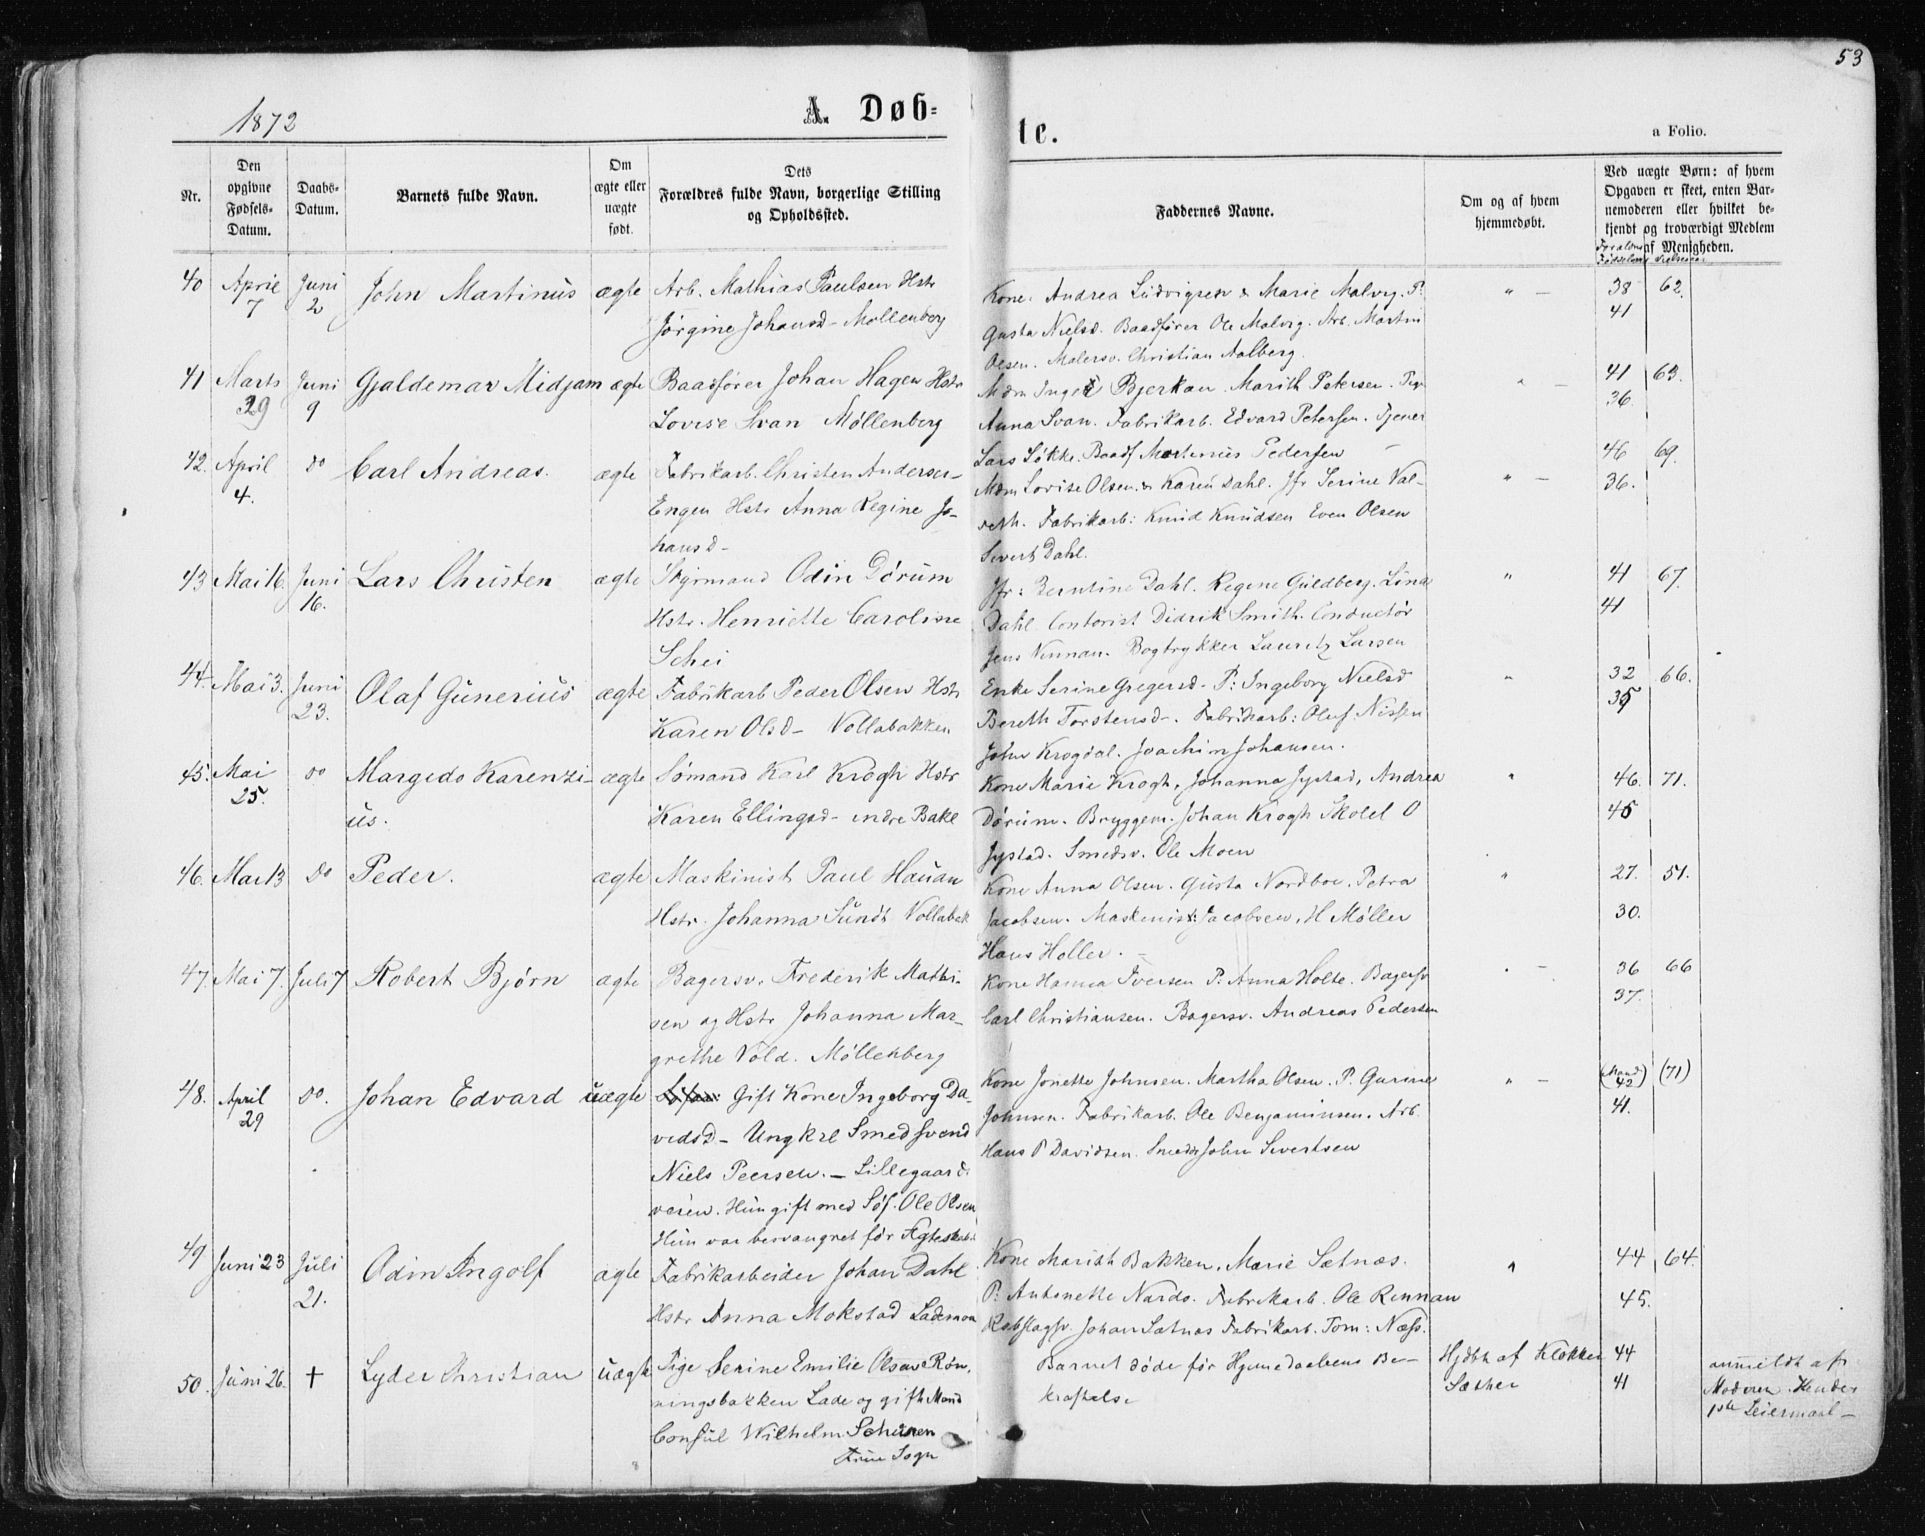 53
1872
A. Døb-
te.
a Folio.
Nr.
Den opgivne Fødsels-Datum.
Daabs-Datum.
Barnets fulde Navn.
Om ægte eller uægte født.
Dets Forældres fulde Navn, borgerlige Stilling og Opholdssted.
Faddernes Navne.
Om og af hvem hjemmedøbt.
Ved uægte Børn: af hvem Opgaven er skeet, enten Barnemoderen eller hvilket bekjendt og troværdigt Medlem af Menigheden.
40 April 7 Juni 2 John Martinus ægte Arb. Mathias Paulsen Hstr
Jørgine Johansd- Møllenberg
Kone. Andrea Ludvigsen & Marie Malvig. P:
Gusta Nielsd. Baadfører Ole Malvig. Arb. Martin
Olsen. Malersv. Christian Aalberg.
" — 38 62.
41
41 Marts 29 Juni 9 Gjaldemar Midjam ægte Baadfører Johan Hagen Hstr
Lovise Svan Møllenberg
Mdm Bjerkan. Marith Petersen. Pig
Anna Svan. Fabrikarb. Edvard Petersen. Tjener
Lars Løkke. Baadf Martinus Pedersen —
" — 41 63.
36.
42. April 4. do Carl Andreas. ægte Fabrikarb. Christen Andersen
Engen Hstr Anna Regine Jo-
hansd-
Mdm Lovise Olsen. & Karen Dahl. Jfr Serine Val-
seth. Fabrikarb: Knud Knudsen Even Olsen
Sivert Dahl.
" — 46 69.
36.
43 Mai 16. Juni 16. Lars Christen ægte Styrmand Odin Dørum
Hstr. Henriette Caroline
Schei
Jfr: Berntine Dahl. Regine Guldberg. Lina
Dahl Contorist Didrik Smith. Conductør
Jens Rinnan. Bogtrykker Lauritz Larsen
" 41 67.
41
44. Mai 3. Juni 23. Olaf Gunerius ægte Fabrikarb Peder Olsen Hstr
Karen Olsd- Vollabakken
Enke Serine Gregersd- P: Ingeborg Nielsd
Bereth Torstensd-. Fabrikarb: Oluf Nissen
John Krogdal. Joachim Johansen.
" 32 66.
35
45. Mai 25. do Margido Karenzi- ægte Sømand Karl Krogh Hstr
us. Karen Ellingsd- indre Bakl
Kone Marie Krogh, Johanna Jystad, Andrea
Dørum. Bryggem. Johan Krogh Skolel O
Jystad. Smedsv. Ole Moen
" 46. 71.
45
46. Mai 13 Do Peder. ægte Maskinist Paul Hauan
Hstr. Johanna Sundt Vollabak
Kone Anna Olsen. Gusta Nordboe. Petra
Jacobsen. Maskinist Jacobsen, H Møller
Hans Holler. —
" 27. 51.
30.
47. Mai 7. Juli 7 Robert Bjørn ægte Bagersv. Frederik Mathi-
sen og Hstr Johanna Mar-
grethe Vold. Møllenberg
Kone Hanna Iversen P: Anna Holte. Bagersv
Carl Christiansen. Bagersv. Andreas Pedersen
" — 36 66
37.
48. April 29 Do. Johan Edvard uægte Gift Kone Ingeborg Da-
vidsd- Ungkrl Smedsvend
Niels Peersen. — Lillegaards
veien. Hun gift med Søf. Ole Olsen
Hun var besvangret før Ægteskabet
Kone Jonette Johnsen. Martha Olsen. P. Gurine
Johnsen. Fabrikarb. Ole Benjaminsen. Arb.
Hans P Davidsen. Smeds John Sivertsen
" — (Mand 42) (71)
41.
49 Juni 23 Juli 21. Odin Ingolf ægte Fabrikarbeider Johan Dahl
Hstr Anna Mokstad Lademoen
Kone Marith Bakken, Marie Sætnæs.
P: Antonette Nards. Fabrikarb. Ole Rennan
Rebslagsv Johan Sætnæs Fabrikarb. Tom: Næss.
" 44 64.
45.
50. Juni 26. + Lyder Christian uægte Pige Serine Emilie Olsen Røn-
ningsbakken Lade og gift Mand
Consul Wilhelm
Frue Sogn
Barnet døde før Hjemmedaabens Be-
kræftelse
Hjdbt af Klokker
Sæther
44
41
anmeldt af
Moderen. Hendes
1ste Leiermaal —